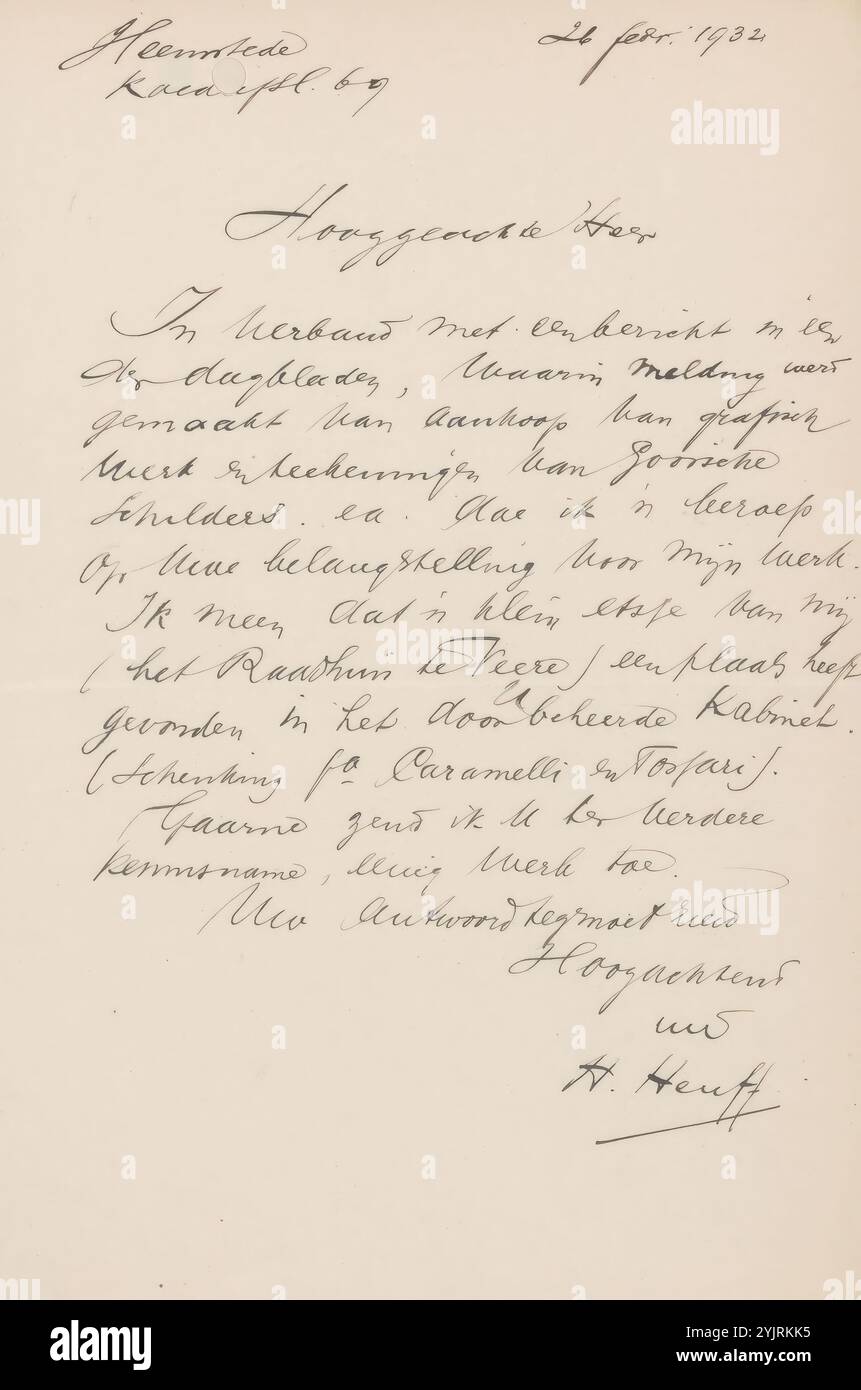 Heemstede
26 febr. 1932
69
Hooggeachte Heer
In verband met een bericht in een
der dagbladen, waarin melding werd
gemaakt van aankoop van grafisch
werk en teekeningen van Gooische
schilders. ea. doe ik 'n beroep
op Uwe belangstelling voor mijn werk.
Ik meen dat 'n klein etsje van mij
(het Raadhuis te Veere) een plaats heeft
gevonden in het door U beheerde Kabinet.
(Schenking fa Caramelli en Tessari).
Gaarne zend ik U ter verdere
kennisname, eenig werk toe.
Uw antwoord tegemoet ziend
Hoogachtend
uwd
H. Heuff
alamy
Image ID: 2YJRKK5
www.alamy.com